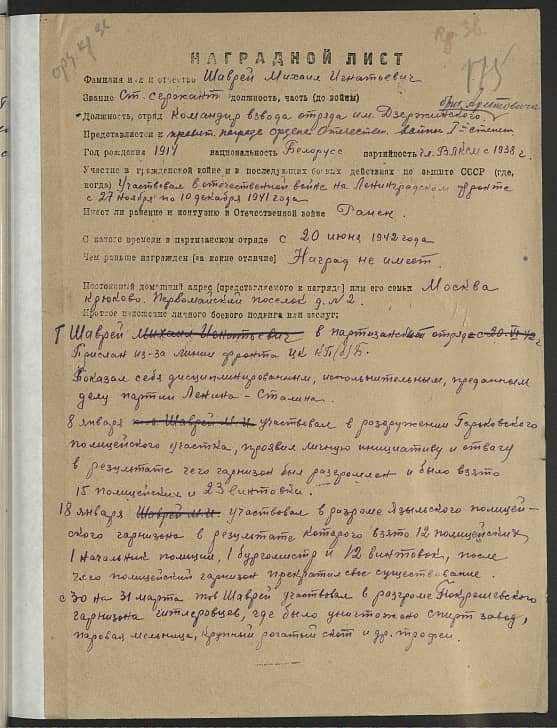 175
НАГРАДНОЙ ЛИСТ
Фамилия имя и отчество Шаврей Михаил Игнатьевич
Звание Ст. сержант должность, часть (до войны)
Должность, отряд Командир взвода отряда им. Дзержинского
Представляется к правит. награде ордена Отечествен. войны I степени
Год рождения 1917 национальность Белорусс партийность Чл. ВЛКСМ с 1938 г.
Участие в гражданской войне и в последующих боевых действиях по защите СССР (где,
когда) Участвовал в отечественной войне на Ленинградском фронте
с 27 ноября по 10 декабря 1941 года
Имеет ли ранение и контузию в Отечественной войне Ранен.
С какого времени в партизанском отряде с 20 июня 1942 года
Чем раньше награжден (за какие отличие) Наград не имеет.
Постоянный домашний адрес (представляемого к награде) или его семьи Москва
Крюково. Первомайский поселок д. № 2.
Краткое изложение личного боевого подвига или заслуг:
Т Шаврей Михаил Игнатьевич в партизанский отряд с 20.VI.42 г
Прислан из-за линии фронта ЦК КП/б/Б.
Показал себя дисциплинированным, исполнительным, преданным
делу партии Ленина - Сталина.
8 января тов Шаврей М.И. участвовал в разоружении Горьковского
полицейского участка, проявил личную инициативу и отвагу
в результате чего гарнизон был разгромлен и было взято
15 полицейских и 23 винтовки.
18 января Шаврей М.И. участвовал в разгроме Языльского полицей-
ского гарнизона в результате которого взято 12 полицейских,
1 начальник полиции, 1 бургомистр и 12 винтовок, после
чего полицейский гарнизон прекратил свое существование.
с 30 на 31 марта тов Шаврей участвовал в разгроме Покрашевского
гарнизона гитлеровцев, где было уничтожено спирт завод,
паровая мельница, крупный рогатый скот и др. трофеи.